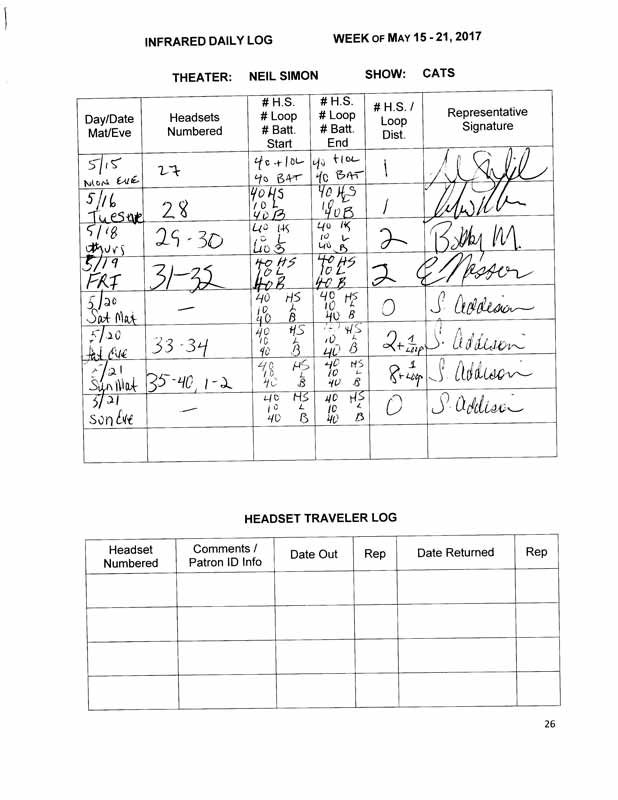 INFRARED DAILY LOG WEEK OF MAY 15 - 21, 2017
THEATER: NEIL SIMON SHOW: CATS
Day/Date Mat/Eve Headsets Numbered # H.S. # Loop # Batt. Start # H.S. # Loop # Batt. End # H.S. / Loop Dist. Representative Signature
5/15 MON EVE 27 40 + 10L 40 BAT 40 + 10L 40 BAT 1
5/16 Tuesday 28 40 HS 10 L 40 B 40 HS 10 L 40 B 1
5/18 thurs 29-30 40 L 40 10 L 40 B 2 Bobby M.
5/19 FRI 31-32 40 HS 10 L 40 B 40 HS 10 L 40 B 2
5/20 Sat Mat — 40 HS 10 L 40 B 40 HS 10 L 40 B 0 S. Addison
5/20 Sat Eve 33-34 40 HS 10 L 40 B HS 10 L 40 B 2 + 1 Loop S. Addison
5/21 Sun Mat 35-40, 1-2 HS L 40 B 40 HS 10 L 40 B 8 + 1 Loop S. Addison
5/21 Sun Eve — 40 HS 10 L 40 B 40 HS 10 L 40 B 0 S. Addison
HEADSET TRAVELER LOG
Headset Numbered Comments / Patron ID Info Date Out Rep Date Returned Rep
26